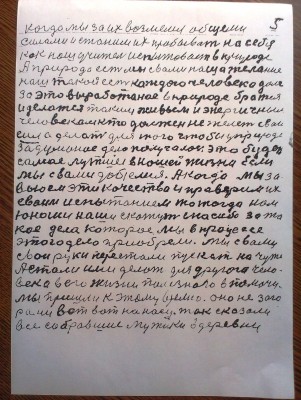 5
когда мы за их возмемся общеми
силами и станим их пробыват на себя
как наш учител испытоват в природе
А природа ест мы с вами наща желание
наш такой ест каждого человека долг
за это выработаное в природе братся
и делатся таким живым и энергичным
человекам кто должен не желет свои
сил а делат для того чтобы у природе
задуманое дело получалос. Это будет
самое лутшее в ношей жизни если
мы с вами добемся. А когда мы за
воюем эти качество и проверим их
своим испытанием то тогда нам
юноши наши скажут спасибо за та
кое дела которое мы в процессе
этого дело приобрели. мы с вами
свои руки перестали пускат на чужое
А стали ими делат для другого чело-
века в его жизни полезного в помочи.
мы пришли к этому время. оно не заго
рами вот вот на носу. так сказали
все собравшие мужики з деревни